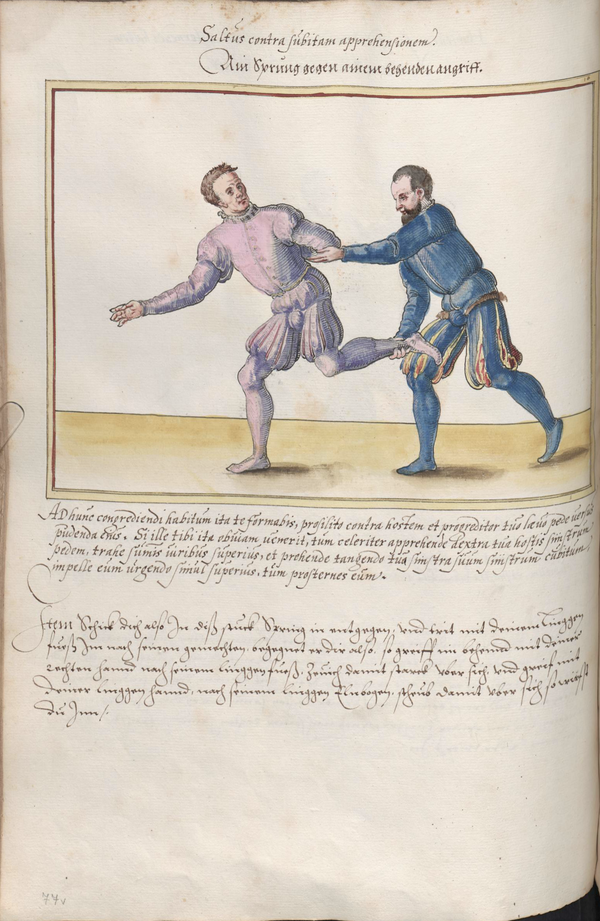 Saltus contra subitam apprehensionem.
Ain Sprung gegen ainem behenden angriff.
AD hunc congrediendi habitum ita te formabis, prosilito contra hostem et progreditor tuo læuo pede versus
pudenda eius. Si ille tibi ita obuiam uenerit, tum celeriter apprehende dextra tua hostis sinistrum
pedem, trahe sumis uiribus superius, et prehende tangendo tua sinistra suum sinistrum cubitum,
impelle eum urgendo simul superius, tum prosternes eum.
Item Schick dich also In diß stuck Spring in entgegen, vnd trit mit deinem Linggen
fueß Im nach seinen gemechten, begegnet er dir also, so greiff im behend mit deiner
rechten hannd nach seinem linggen fueß, Zeuch damit starck vber sich, vnd greif mit
deiner linggen hannd, nach seinem linggen Elnbogen, scheub damit vber sich so wirfst
du Inn
77v